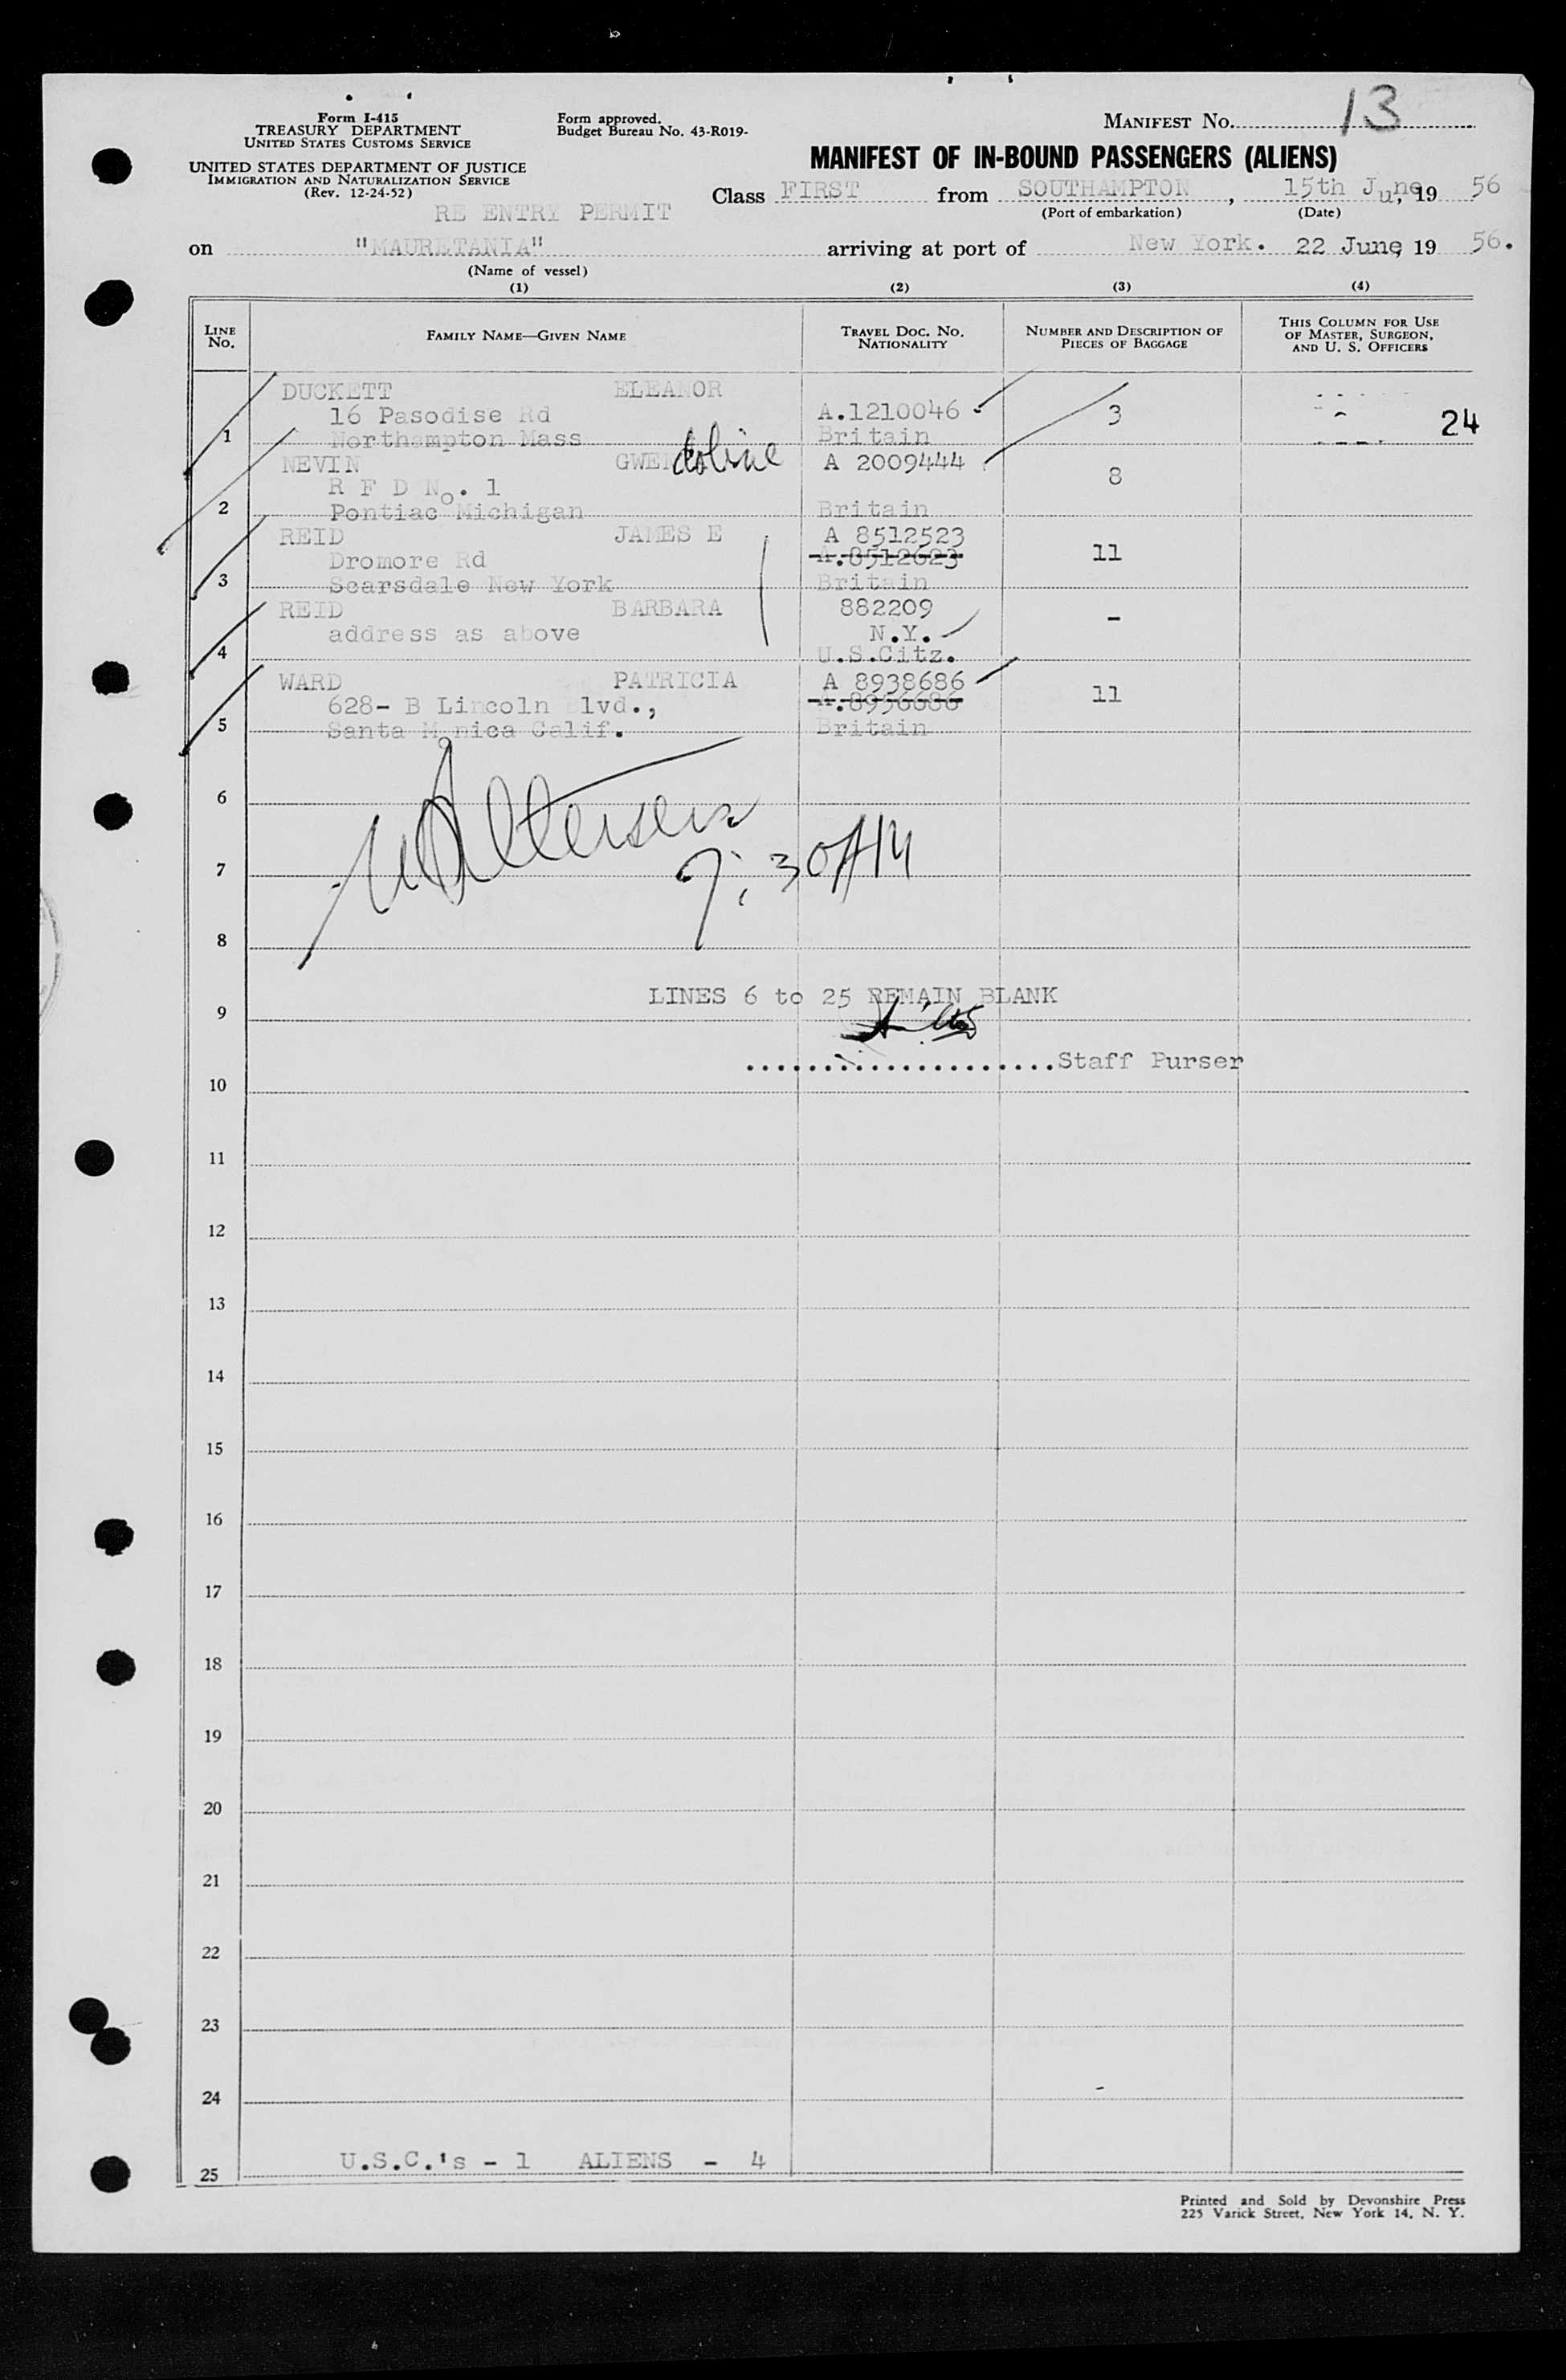 Form I-415
TREASURY DEPARTMENT
UNITED STATES CUSTOMS SERVICE
Form approved.
Budget Bureau No. 43-R019-
MANIFEST NO. 13
UNITED STATES DEPARTMENT OF JUSTICE
IMMIGRATION AND NATURALIZATION SERVICE
(Rev. 12-24-52)
RE ENTRY PERMIT
MANIFEST OF IN-BOUND PASSENGERS (ALIENS)
Class FIRST from SOUTHAMPTON, 15th June, 19 56
(Port of embarkation) (Date)
on "MAURETANIA" arriving at port of New York. 22 June, 19 56.
(Name of vessel)
(1) (2) (3) (4)
LINE No. FAMILY NAME—GIVEN NAME TRAVEL DOC. NO. NATIONALITY NUMBER AND DESCRIPTION OF PIECES OF BAGGAGE THIS COLUMN FOR USE OF MASTER, SURGEON, AND U. S. OFFICERS
DUCKETT ELEANOR
16 Pasodise Rd A.1210046 3 24
1 Northampton Mass Britain
NEVIN GWENdoline A 2009444
R F D No. 1 8
2 Pontiac Michigan Britain
REID JAMES E A 8512523
Dromore Rd A.8512623 11
3 Scarsdale New York Britain
REID BARBARA 882209 -
address as above N.Y.
4 U.S.Citz.
WARD PATRICIA A 8938686
628- B Lincoln Blvd., A.8956686 11
5 Santa Monica Calif. Britain
6
7
8
LINES 6 to 25 REMAIN BLANK
9
....................Staff Purser
10
11
12
13
14
15
16
17
18
19
20
21
22
23
24
25 U.S.C.'s - 1 ALIENS - 4
Printed and Sold by Devonshire Press
225 Varick Street, New York 14, N. Y.